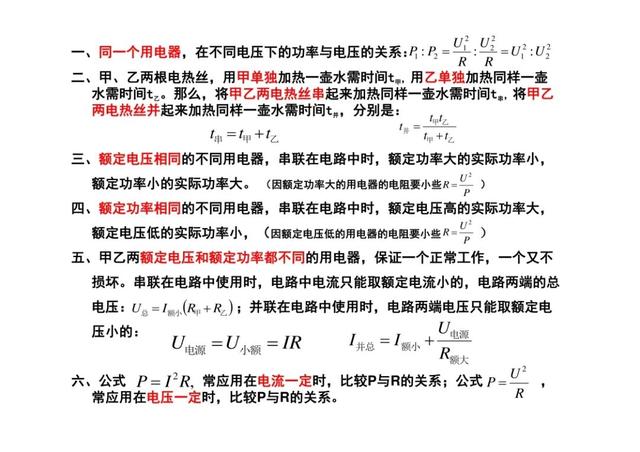 一、同一个用电器，在不同电压下的功率与电压的关系：P₁：P₂ = U₁²/R：U₂²/R = U₁²：U₂²
二、甲、乙两根电热丝，用甲单独加热一壶水需时间t甲，用乙单独加热同样一壶
水需时间t乙。那么，将甲乙两电热丝串起来加热同样一壶水需时间t串，将甲乙
两电热丝并起来加热同样一壶水需时间t并，分别是：
t串 = t甲 + t乙 t并 = t甲t乙/(t甲 + t乙)
三、额定电压相同的不同用电器，串联在电路中时，额定功率大的实际功率小，
额定功率小的实际功率大。（因额定功率大的用电器的电阻要小些 R = U²/P ）
四、额定功率相同的不同用电器，串联在电路中时，额定电压高的实际功率大，
额定电压低的实际功率小，（因额定电压低的用电器的电阻要小些 R = U²/P ）
五、甲乙两额定电压和额定功率都不同的用电器，保证一个正常工作，一个又不
损坏。串联在电路中使用时，电路中电流只能取额定电流小的，电路两端的总
电压：U总 = I额小(R甲 + R乙)；并联在电路中使用时，电路两端电压只能取额定电
压小的： U电源 = U小额 = IR I并总 = I额小 + U电源/R额大
六、公式 P = I²R, 常应用在电流一定时，比较P与R的关系；公式 P = U²/R ，
常应用在电压一定时，比较P与R的关系。